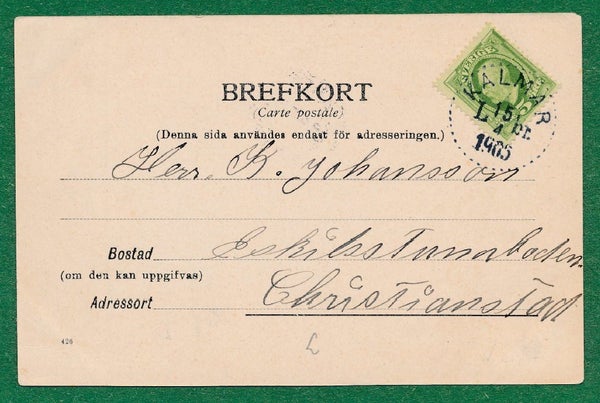 BREFKORT
(Carte postale)
(Denna sida användes endast för adresseringen.)
SVERIGE
KALMAR
15
4
1905
Herr. K. Johansson
Bostad Eskilstunaboden.
(om den kan uppgifvas)
Adressort Christianstad
426